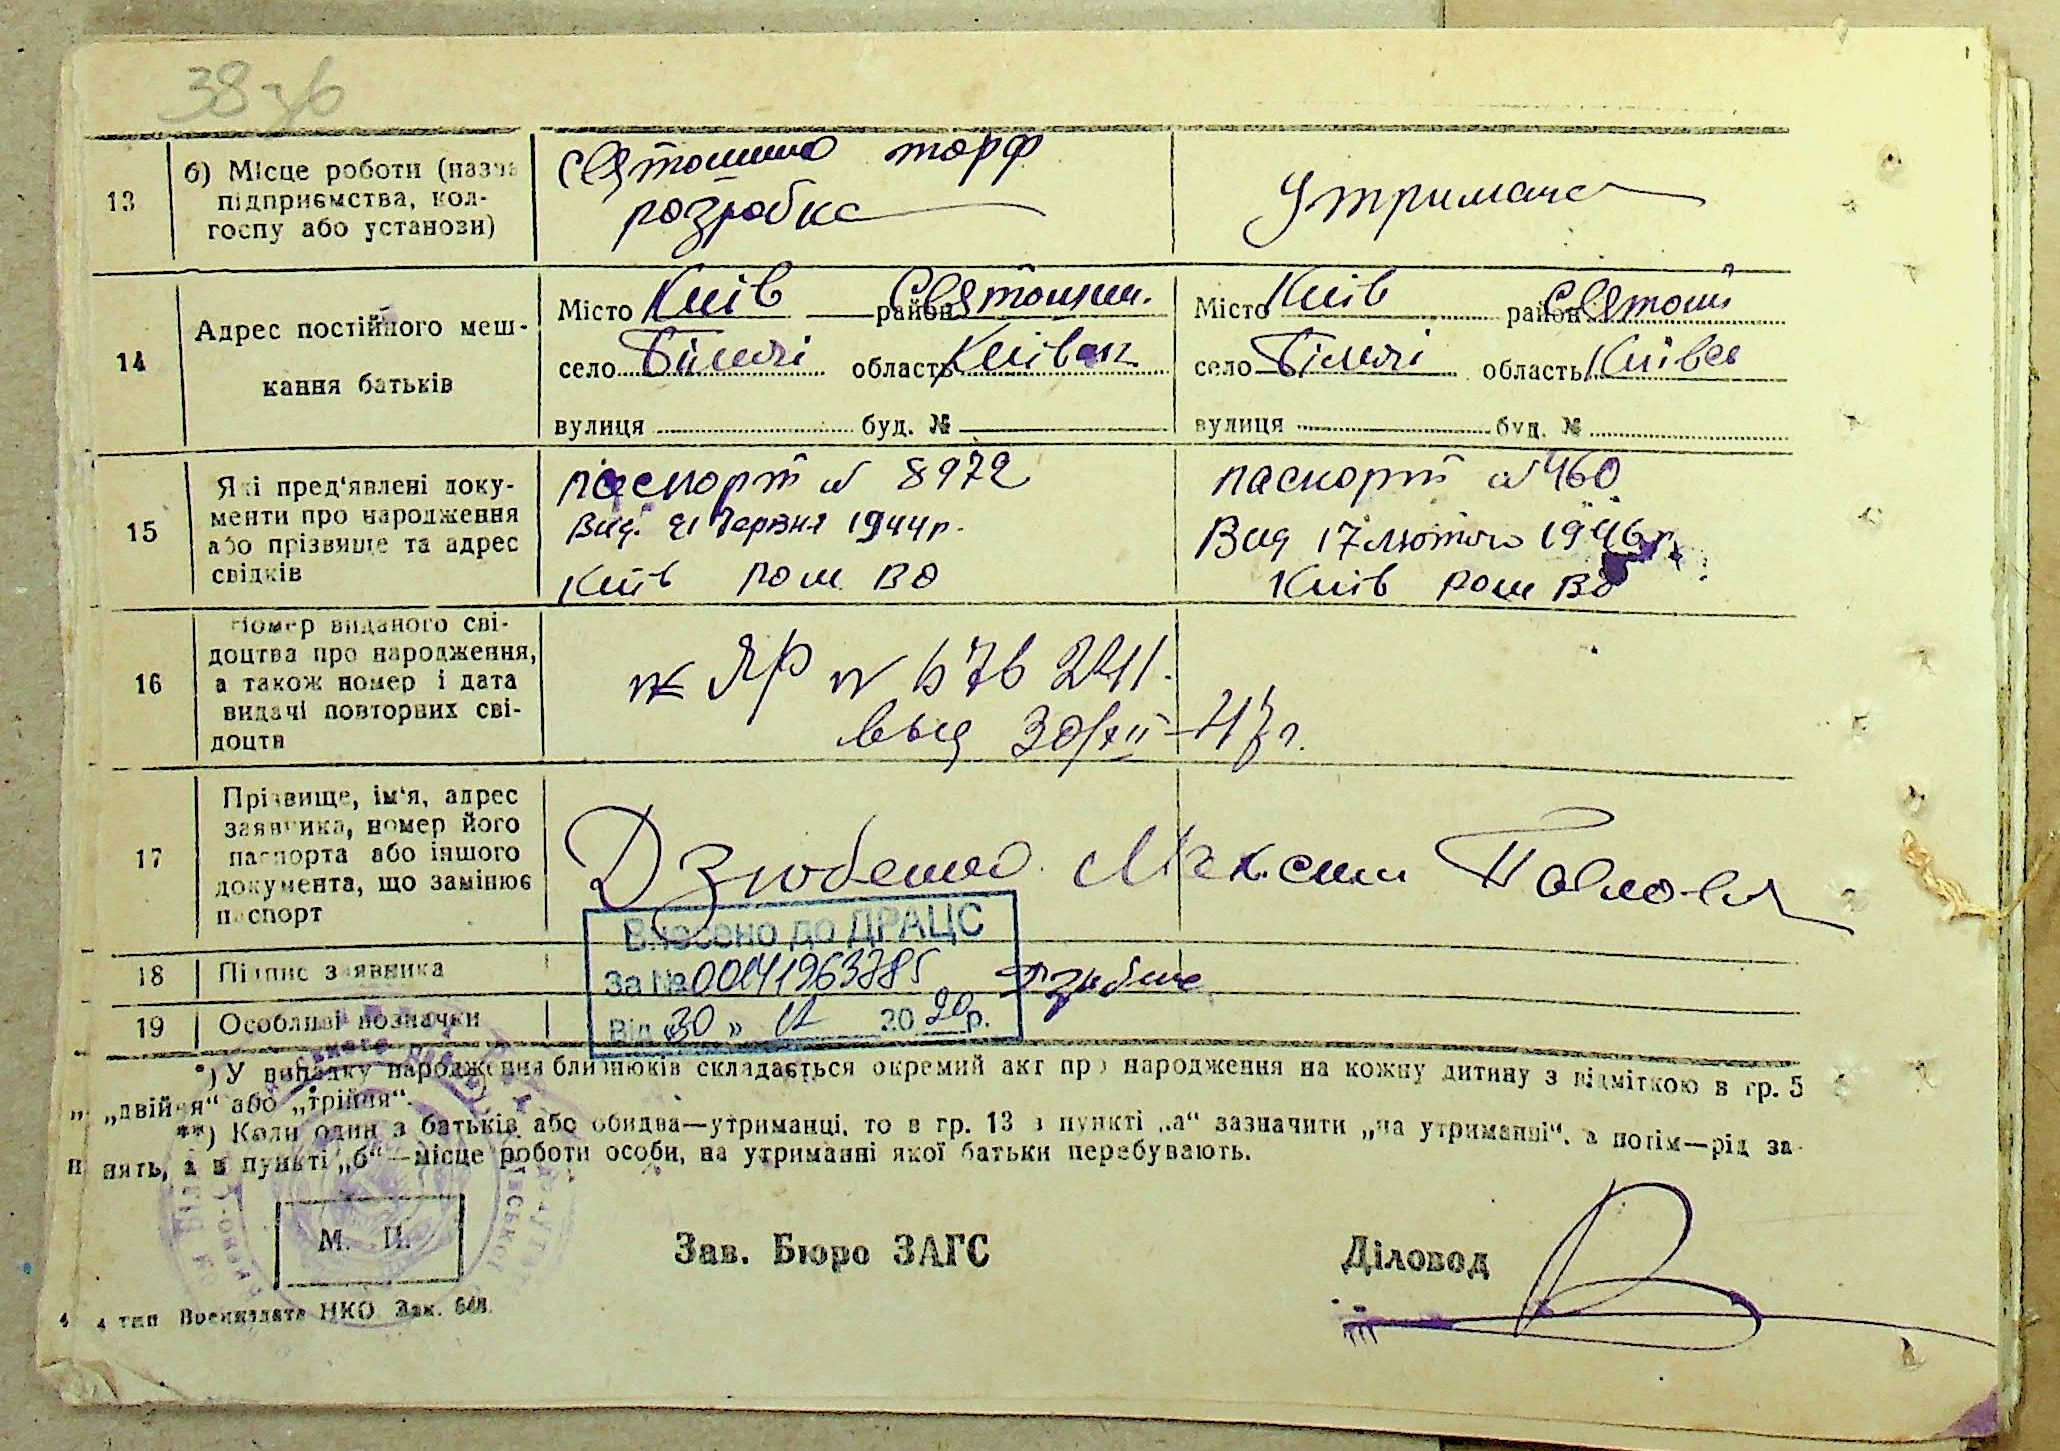 38 зв
13
б) Місце роботи (назва
підприємства, кол-
госпу або установи)
Святошино торф
розробка
Утриманс
14
Адрес постійного меш-
кання батьків
Місто Київ район Святошин.
село Біличі область Київськ
вулиця буд. №
Місто Київ район Святош
село Біличі область Київсь
вулиця буд. №
15
Які пред'явлені доку-
менти про народження
або прізвище та адрес
свідків
паспорт № 8972
Вид. 21 Червня 1944 р.
Київ РОМ ВО
паспорт № 460
Вид 17 лютого 1946 р.
Київ РОМ ВО
16
Номер виданого сві-
доцтва про народження,
а також номер і дата
видачі повторних сві-
доцтв
ЯР № 676 241.
выд 30/XII-47 г.
17
Прізвище, ім'я, адрес
заявника, номер його
паспорта або іншого
документа, що замінює
паспорт
Дзюбенко Максим Павлович
18
Підпис заявника
19
Особливі позначки
Внесено до ДРАЦС
За № 00141963785
Від «30» 12 2020 р.
*) У випадку народження близнюків складається окремий акт про народження на кожну дитину з відміткою в гр. 5
„двійня“ або „трійня“.
**) Коли один з батьків або обидва—утриманці, то в гр. 13 в пункті „а“ зазначити „на утриманні“, а потім—рід за-
нять, а в пункті „б“—місце роботи особи, на утриманні якої батьки перебувають.
М. П.
Зав. Бюро ЗАГС
Діловод
4 тип Воениздата НКО Зак. 648.